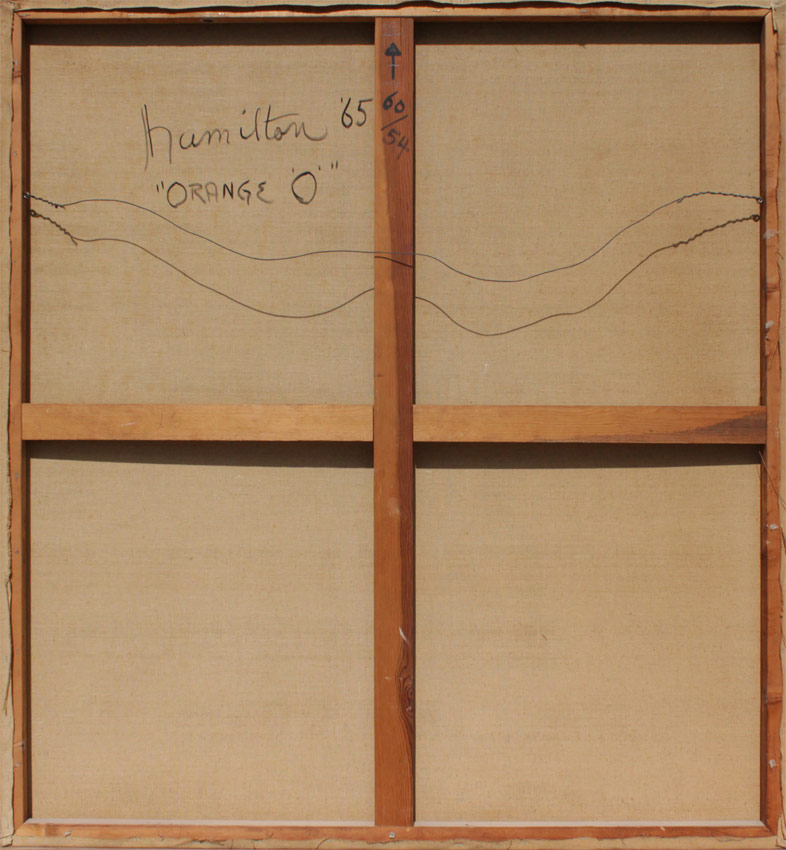 Hamilton '65
"ORANGE 'O'"
60/54